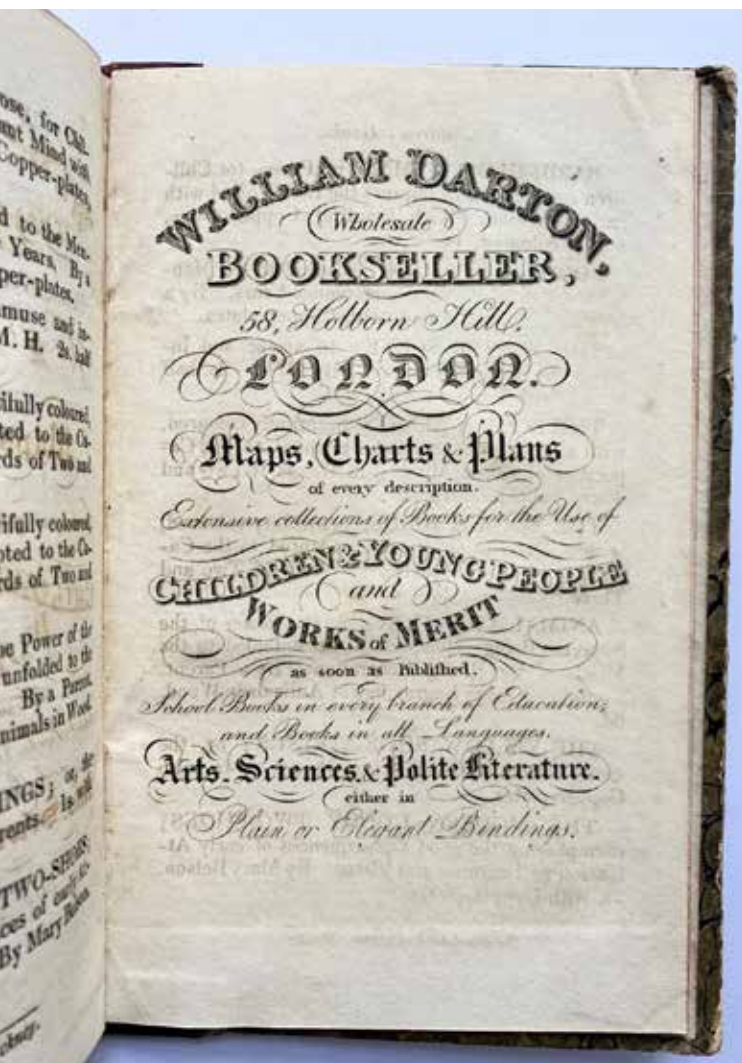 ose, for Chil-
ant Mind with
Copper-plates,
d to the Men-
Years. By a
per-plates,
muse and in-
M. H. 2s. half
ifully coloured,
ted to the Ca-
rds of Two and
ifully coloured,
pted to the Ca-
rds of Two and
he Power of the
unfolded to the
By a Parent.
nimals in Wood.
INGS; or, the
rents. 1s. with
TWO-SHOES;
ces of early At-
By Mary Belson.
ckney.
WILLIAM DARTON,
Wholesale
BOOKSELLER,
58, Holborn Hill.
LONDON.
Maps, Charts & Plans
of every description.
Extensive collections of Books for the Use of
CHILDREN & YOUNG PEOPLE
and
WORKS of MERIT
as soon as Publiſhed.
School Books in every branch of Education;
and Books in all Languages.
Arts. Sciences. & Polite Literature.
either in
Plain or Elegant Bindings.